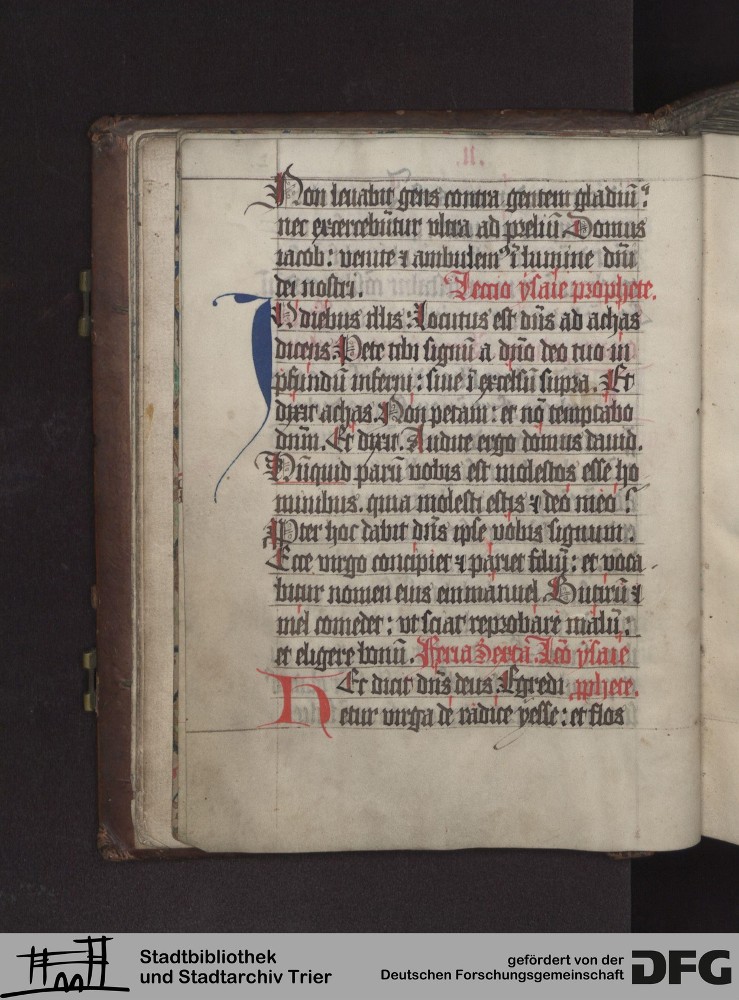 .ii.
Non leuabit gens contra gentem gladiū:
nec exercebūtur vltra ad preliū. Domus
iacob: venite ⁊ ambulemꝰ ī lumine dn̄i
dei nostri. Lectio ysaie prophete.
IN diebus illis: Locutus est dn̄s ad achas
dicens. Pete tibi signū a dn̄o deo tuo in
ꝓfundū inferni: siue ī excelsū supra. Et
dixit achas. Non petam: et nō temptabo
dnm̄. Et dixit. Audite ergo domus dauid.
Nūquid parū vobis est molestos esse ho
minibus. quia molesti estis ⁊ deo meo?
Pter hoc dabit dn̄s ipse vobis signum.
Ecce virgo concipiet ⁊ pariet filiū: et voca
bitur nomen eius emmanuel. Butirū ⁊
mel comedet: vt sciat reprobare malū:
et eligere bonū. Feria Sexta. Lc̄o ysaie
HEc dicit dn̄s deus. Egredi ꝓphete.
etur virga de radice yesse: et flos
Stadtbibliothek
und Stadtarchiv Trier
gefördert von der
Deutschen Forschungsgemeinschaft
DFG